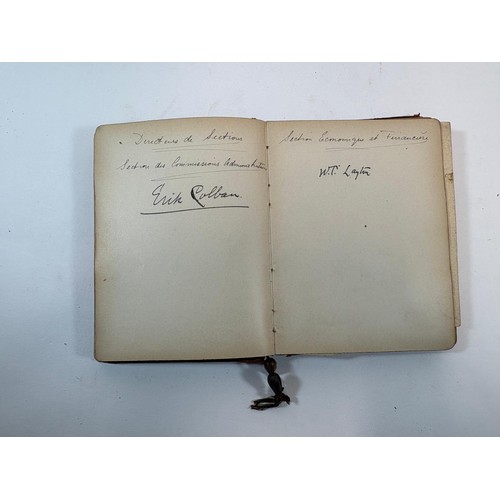 Directeurs de Sections
Section des Commissions Administratives
Erik Colban.
Section Economique et Financière
W.T. Layton